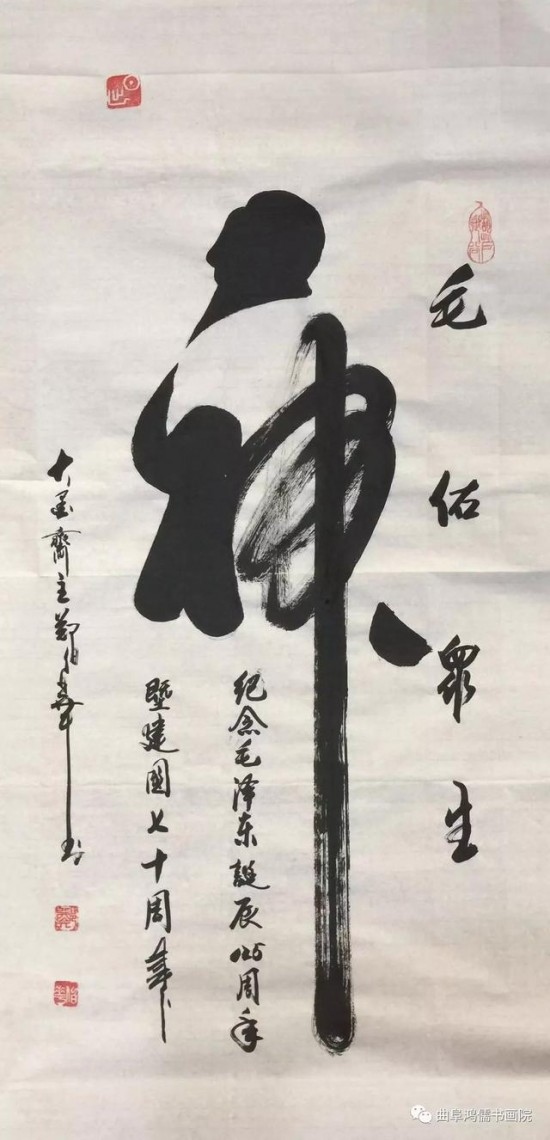 毛佑眾生
神
纪念毛泽东誕辰125周年
暨建國七十周年
大墨齋主鄭伯華
曲阜鸿儒书画院